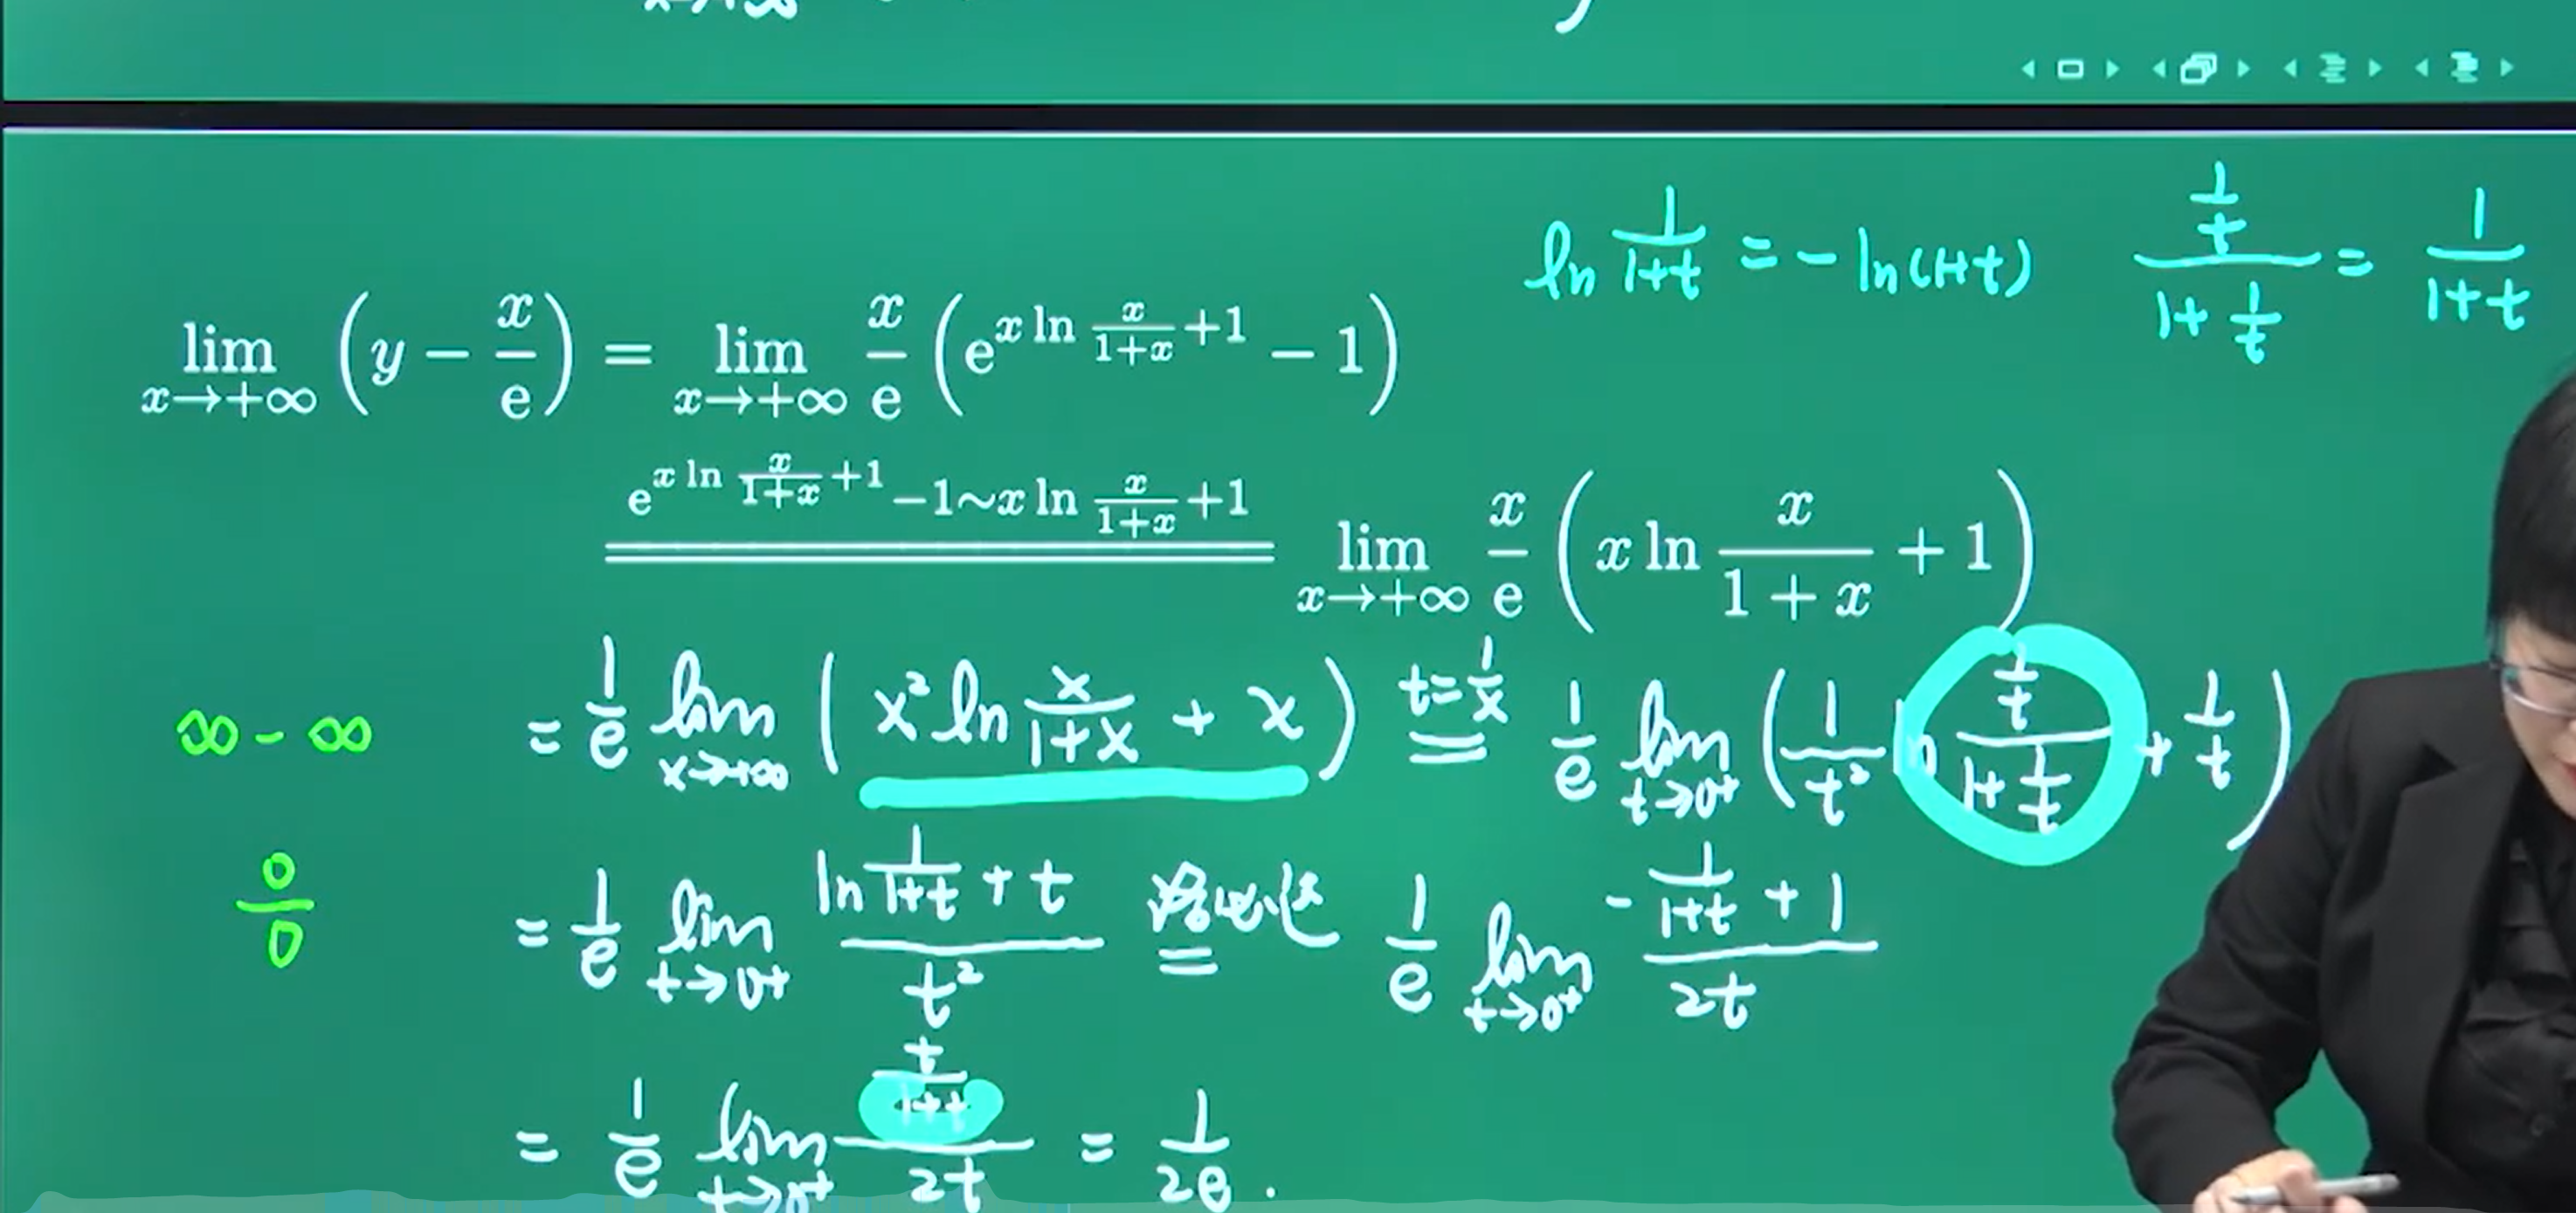 ln 1/(1+t) = - ln(1+t)    (1/t)/(1+1/t) = 1/(1+t)
lim_{x→+∞} (y − x/e) = lim_{x→+∞} x/e (e^{x ln x/(1+x) +1} − 1)
e^{x ln x/(1+x) +1} −1~x ln x/(1+x) +1 ══ lim_{x→+∞} x/e (x ln x/(1+x) + 1)
∞ - ∞    = 1/e lim_{x→+∞} ( x² ln x/(1+x) + x ) t=1/x = 1/e lim_{t→0⁺} (1/t² ln (1/t)/(1+1/t) + 1/t)
0/0    = 1/e lim_{t→0⁺} (ln 1/(1+t) + t)/t² 洛必达 = 1/e lim_{t→0⁺} (- 1/(1+t) + 1)/2t
= 1/e lim_{t→0⁺} (t/(1+t))/2t = 1/2e .